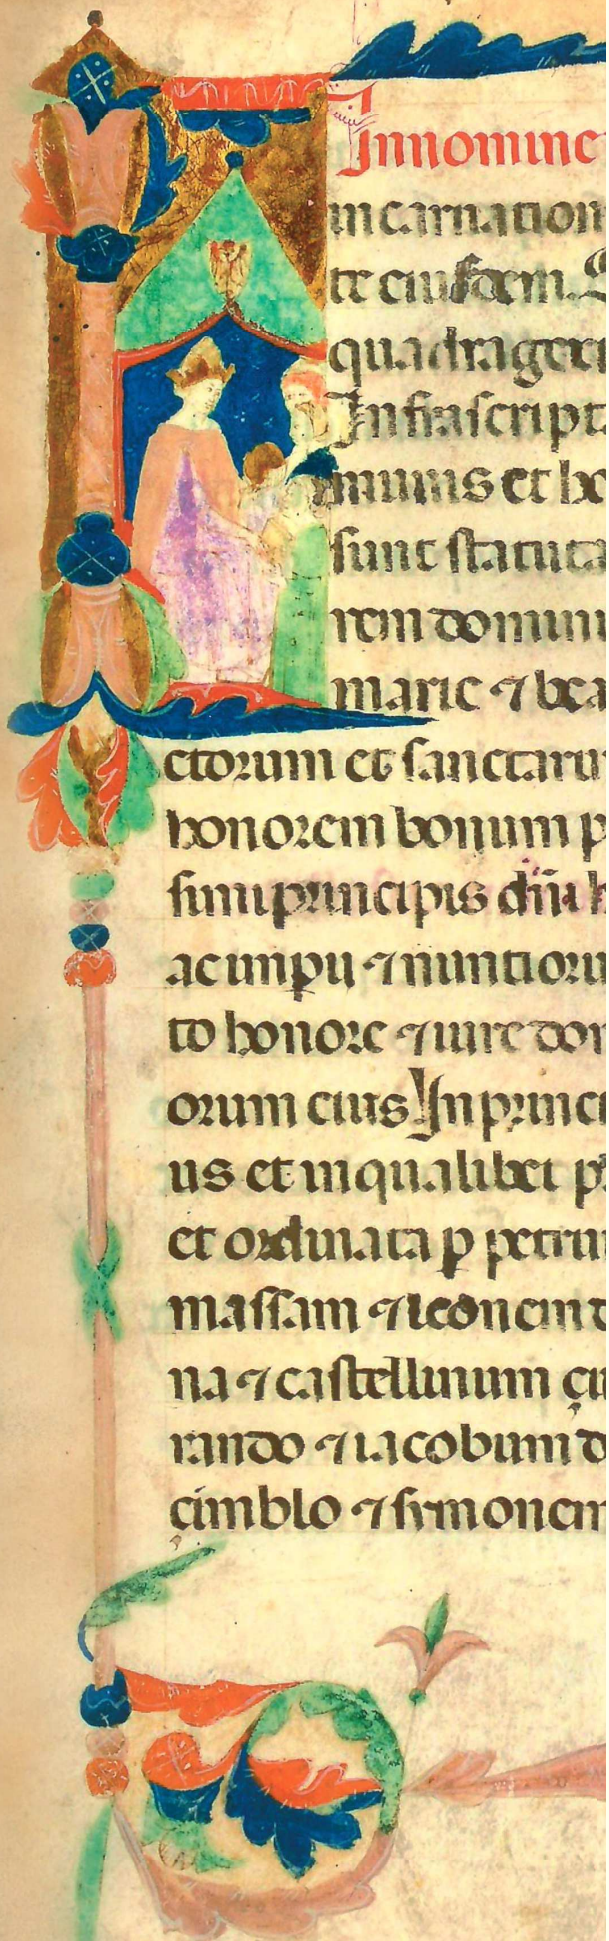 Innomine
incarnation
te eiusdem. S
quadragexi
Infrascript
muuis et ho
sunt statuta
rem domini
marie ⁊ bea
ctorum et sanctaru
honorem bonum p
simi principis dn̄i h
ac impii ⁊ nuntioru
to honore ⁊ iure dom
orum eius In princi
us et in qualibet p
et ordinata p petru
massam ⁊ leonem d
na ⁊ castellinum çu
rando ⁊ iacobum d
çimblo ⁊ symonem